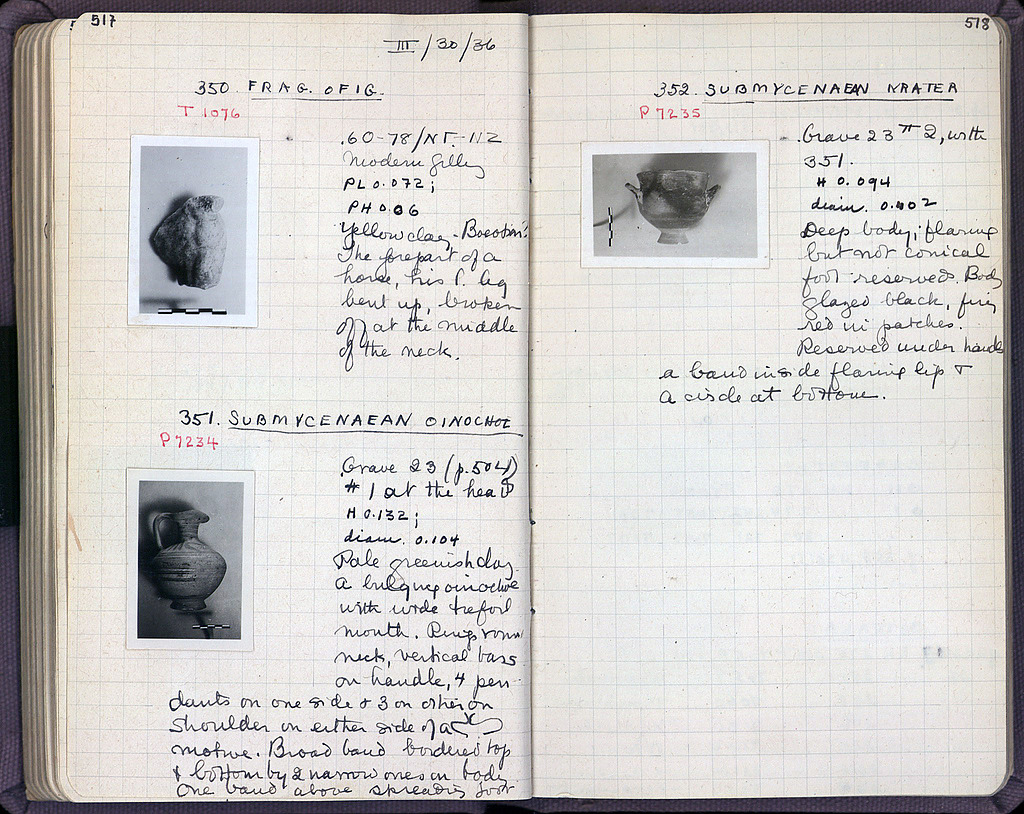 517
III/30/36
350. FRAG. OF FIG.
T 1076
.60-78/ΝΓ-112
Modern filling
PL 0.072;
PH 0.06
Yellow clay - Boeotian?
The forepart of a
horse, his l. leg
bent up, broken
off at the middle
of the neck.
351. SUBMYCENAEAN OINOCHOE
P 7234
Grave 23 (p. 504)
# 1 at the head
H 0.132;
diam. 0.104
Pale greenish clay
a bulging oinochoe
with wide trefoil
mouth. Rings round
neck, vertical bars
on handle, 4 pen
dants on one side & 3 on other on
shoulder on either side of a
motive. Broad band bordered top
& bottom by 2 narrow ones on body
One band above spreading foot
518
352. SUBMYCENAEAN KRATER
P 7235
Grave 23 # 2, with
351.
H 0.094
diam. 0.102
Deep body, flaring
but not conical
foot reserved. Body
glazed black, firing
red in patches.
Reserved under handles
a band inside flaring lip &
a circle at bottom.